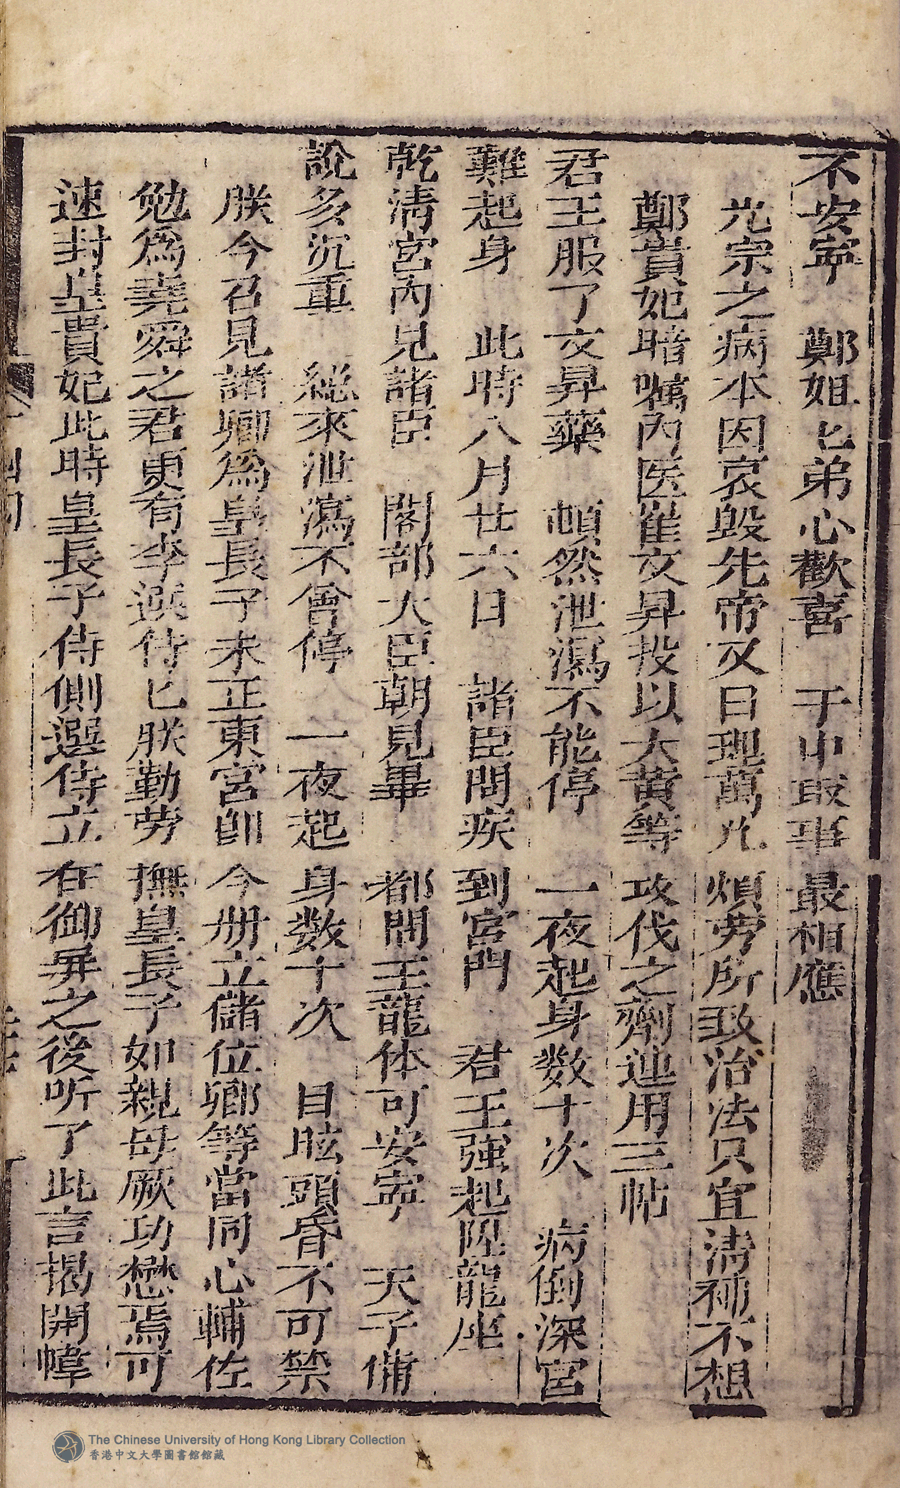 不安寧　鄭姐匕弟心歡喜　于中取事最相應
光宗之病本因哀毀先帝又日理萬几煩勞所致治法只宜清補不想
鄭貴妃暗嘱内医崔文昇投以大黄等攻伐之劑連用三帖
君王服了文昇藥　頓然泄瀉不能停　一夜起身数十次　病倒深宮
難起身　此時八月廿六日　諸臣問疾到宮門　君王強起陞龍座
乾清宮内見諸臣　閣部大臣朝見畢　都問王龍体可安寧　天子備
說多沉重　絕來泄瀉不會停　一夜起身数十次　目眩頭昏不可禁
朕今召見諸卿為皇長子未正東宮即今册立儲位卿等當同心輔佐
勉爲堯舜之君更有李選侍匕朕勤勞撫皇長子如親母厥功懋焉可
速封皇貴妃此時皇長子侍側選侍立在御屏之後听了此言揭開幃
The Chinese University of Hong Kong Library Collection
香港中文大學圖書館館藏